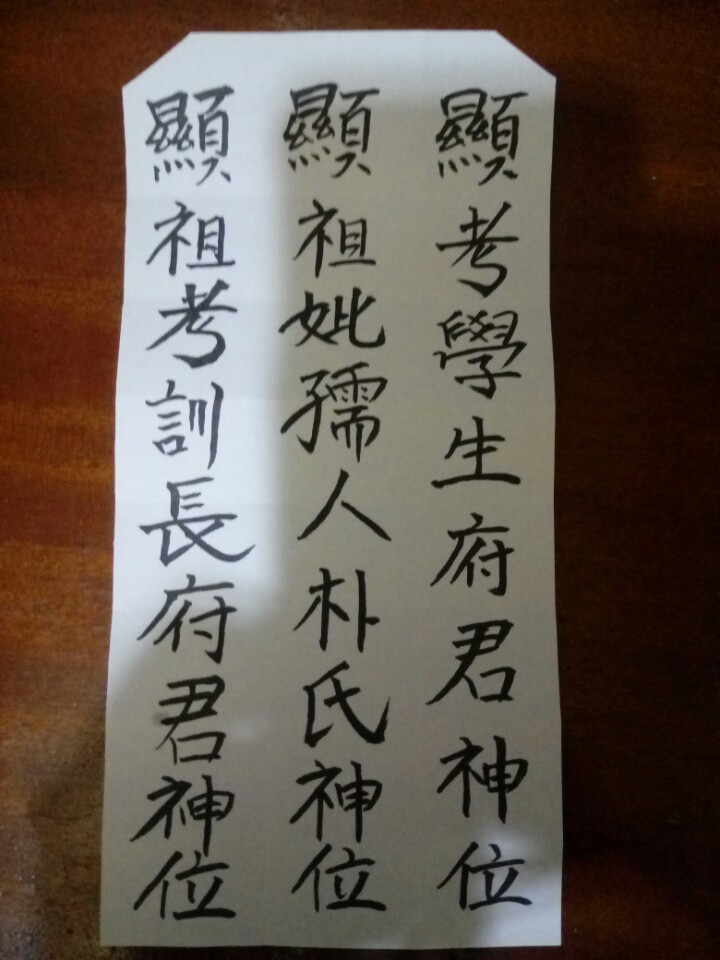 顯祖考訓長府君神位
顯祖妣孺人朴氏神位
顯考學生府君神位